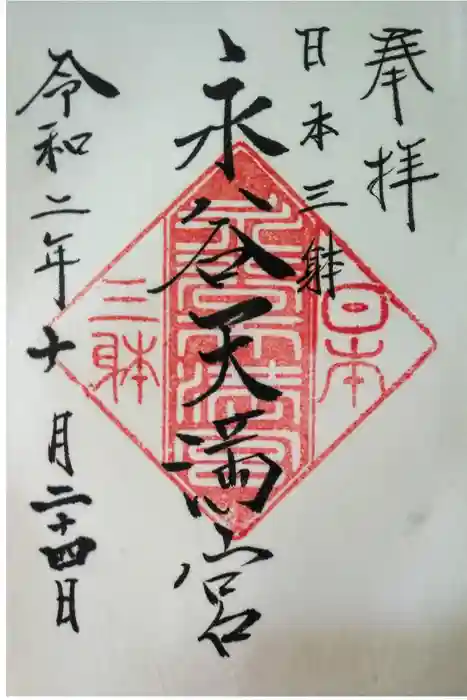 奉拝
日本三躰
永谷天満宮
令和二年十月二十四日
日本
永谷天満宮
三躰